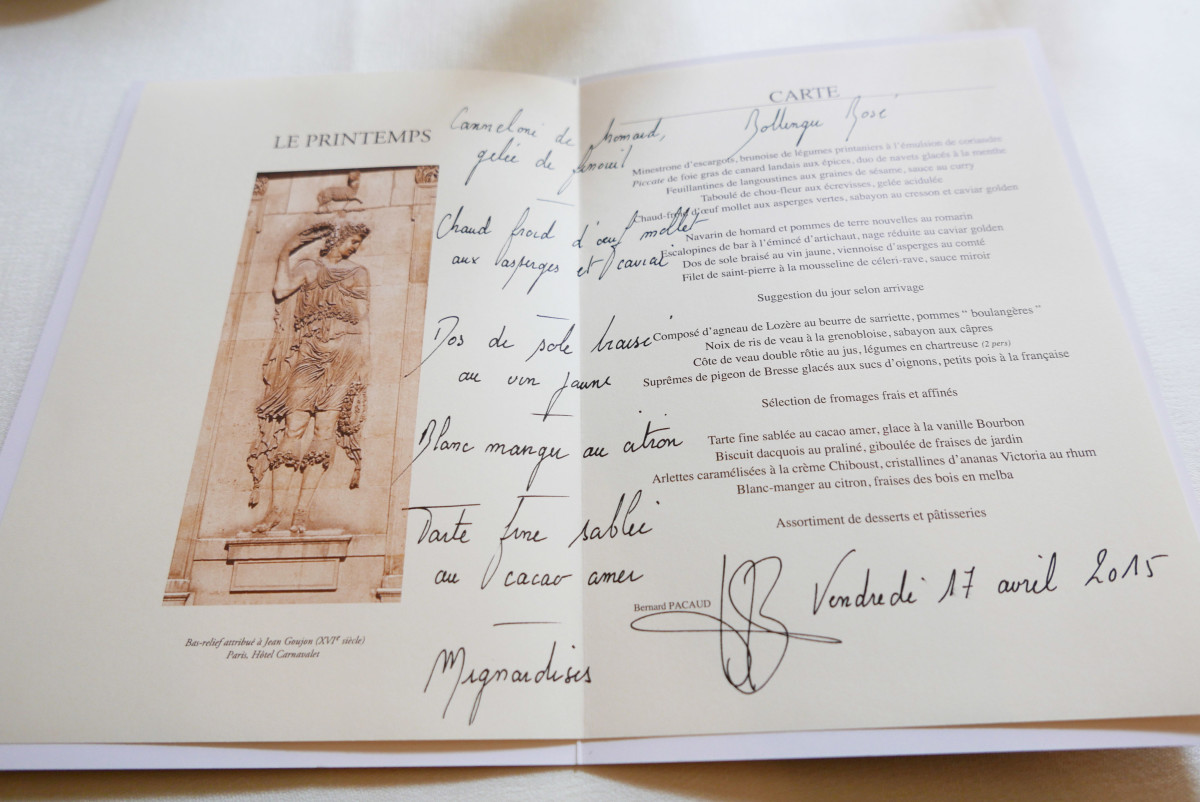 LE PRINTEMPS
Bas-relief attribué à Jean Goujon (XVIe siècle)
Paris, Hôtel Carnavalet
Canneloni de homard,
gelée de fenouil
Chaud froid d'œuf mollet
aux asperges et caviar
Dos de sole braisé
au vin jaune
Blanc manger au citron
Tarte fine sablée
au cacao amer
Mignardises
CARTE
Bollinger Rosé
Minestrone d'escargots, brunoise de légumes printaniers à l'émulsion de coriandre
Piccate de foie gras de canard landais aux épices, duo de navets glacés à la menthe
Feuillantines de langoustines aux graines de sésame, sauce au curry
Taboulé de chou-fleur aux écrevisses, gelée acidulée
Chaud-froid d'œuf mollet aux asperges vertes, sabayon au cresson et caviar golden
Navarin de homard et pommes de terre nouvelles au romarin
Escalopines de bar à l'émincé d'artichaut, nage réduite au caviar golden
Dos de sole braisé au vin jaune, viennoise d'asperges au comté
Filet de saint-pierre à la mousseline de céleri-rave, sauce miroir
Suggestion du jour selon arrivage
Composé d'agneau de Lozère au beurre de sarriette, pommes “ boulangères ”
Noix de ris de veau à la grenobloise, sabayon aux câpres
Côte de veau double rôtie au jus, légumes en chartreuse (2 pers)
Suprêmes de pigeon de Bresse glacés aux sucs d'oignons, petits pois à la française
Sélection de fromages frais et affinés
Tarte fine sablée au cacao amer, glace à la vanille Bourbon
Biscuit dacquois au praliné, giboulée de fraises de jardin
Arlettes caramélisées à la crème Chiboust, cristallines d'ananas Victoria au rhum
Blanc-manger au citron, fraises des bois en melba
Assortiment de desserts et pâtisseries
Bernard PACAUD
Vendredi 17 avril 2015